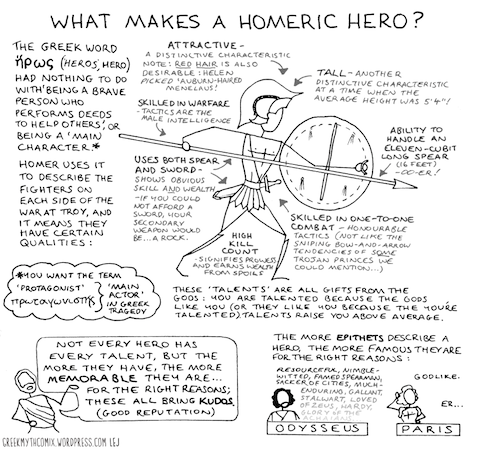 WHAT MAKES A HOMERIC HERO?
THE GREEK WORD
ἥρως (HEROS, HERO)
HAD NOTHING TO DO
WITH 'BEING A BRAVE
PERSON WHO
PERFORMS DEEDS
TO HELP OTHERS', OR
BEING A 'MAIN
CHARACTER.'*
HOMER USES IT
TO DESCRIBE THE
FIGHTERS ON
EACH SIDE OF THE
WAR AT TROY, AND
IT MEANS THEY
HAVE CERTAIN
QUALITIES:
*YOU WANT THE TERM
'PROTAGONIST'
πρωταγωνιστής
'MAIN
ACTOR'
IN GREEK
TRAGEDY
ATTRACTIVE -
A DISTINCTIVE CHARACTERISTIC
NOTE: RED HAIR IS ALSO
DESIRABLE: HELEN
PICKED 'AUBURN-HAIRED
MENELAUS'!
TALL - ANOTHER
DISTINCTIVE CHARACTERISTIC
AT A TIME WHEN THE
AVERAGE HEIGHT WAS 5'4"!
SKILLED IN WARFARE
- TACTICS ARE THE
MALE INTELLIGENCE
ABILITY TO
HANDLE AN
ELEVEN-CUBIT
LONG SPEAR
(16 FEET)
- OO-ER!
USES BOTH SPEAR
AND SWORD -
SHOWS OBVIOUS
SKILL AND WEALTH
- IF YOU COULD
NOT AFFORD A
SWORD, YOUR
SECONDARY
WEAPON WOULD
BE... A ROCK.
HIGH
KILL
COUNT
- SIGNIFIES PROWESS
AND EARNS WEALTH
FROM SPOILS
SKILLED IN ONE-TO-ONE
COMBAT - HONOURABLE
TACTICS (NOT LIKE THE
SNIPING BOW-AND-ARROW
TENDENCIES OF SOME
TROJAN PRINCES WE
COULD MENTION...)
THESE 'TALENTS' ARE ALL GIFTS FROM THE
GODS: YOU ARE TALENTED BECAUSE THE GODS
LIKE YOU (OR THEY LIKE YOU BECAUSE THE YOU'RE
TALENTED). TALENTS RAISE YOU ABOVE AVERAGE.
NOT EVERY HERO HAS
EVERY TALENT, BUT THE
MORE THEY HAVE, THE MORE
MEMORABLE THEY ARE...
FOR THE RIGHT REASONS;
THESE ALL BRING KUDOS.
(GOOD REPUTATION)
THE MORE EPITHETS DESCRIBE A
HERO, THE MORE FAMOUS THEY ARE
FOR THE RIGHT REASONS:
RESOURCEFUL, NIMBLE-
WITTED, FAMED SPEARMAN,
SACKER OF CITIES, MUCH-
ENDURING, GALLANT,
STALWART, LOVED
OF ZEUS, HARDY,
GLORY OF THE
ACHAIANS
ODYSSEUS
GODLIKE.
ER...
PARIS
GREEKMYTHCOMIX.WORDPRESS.COM LEJ